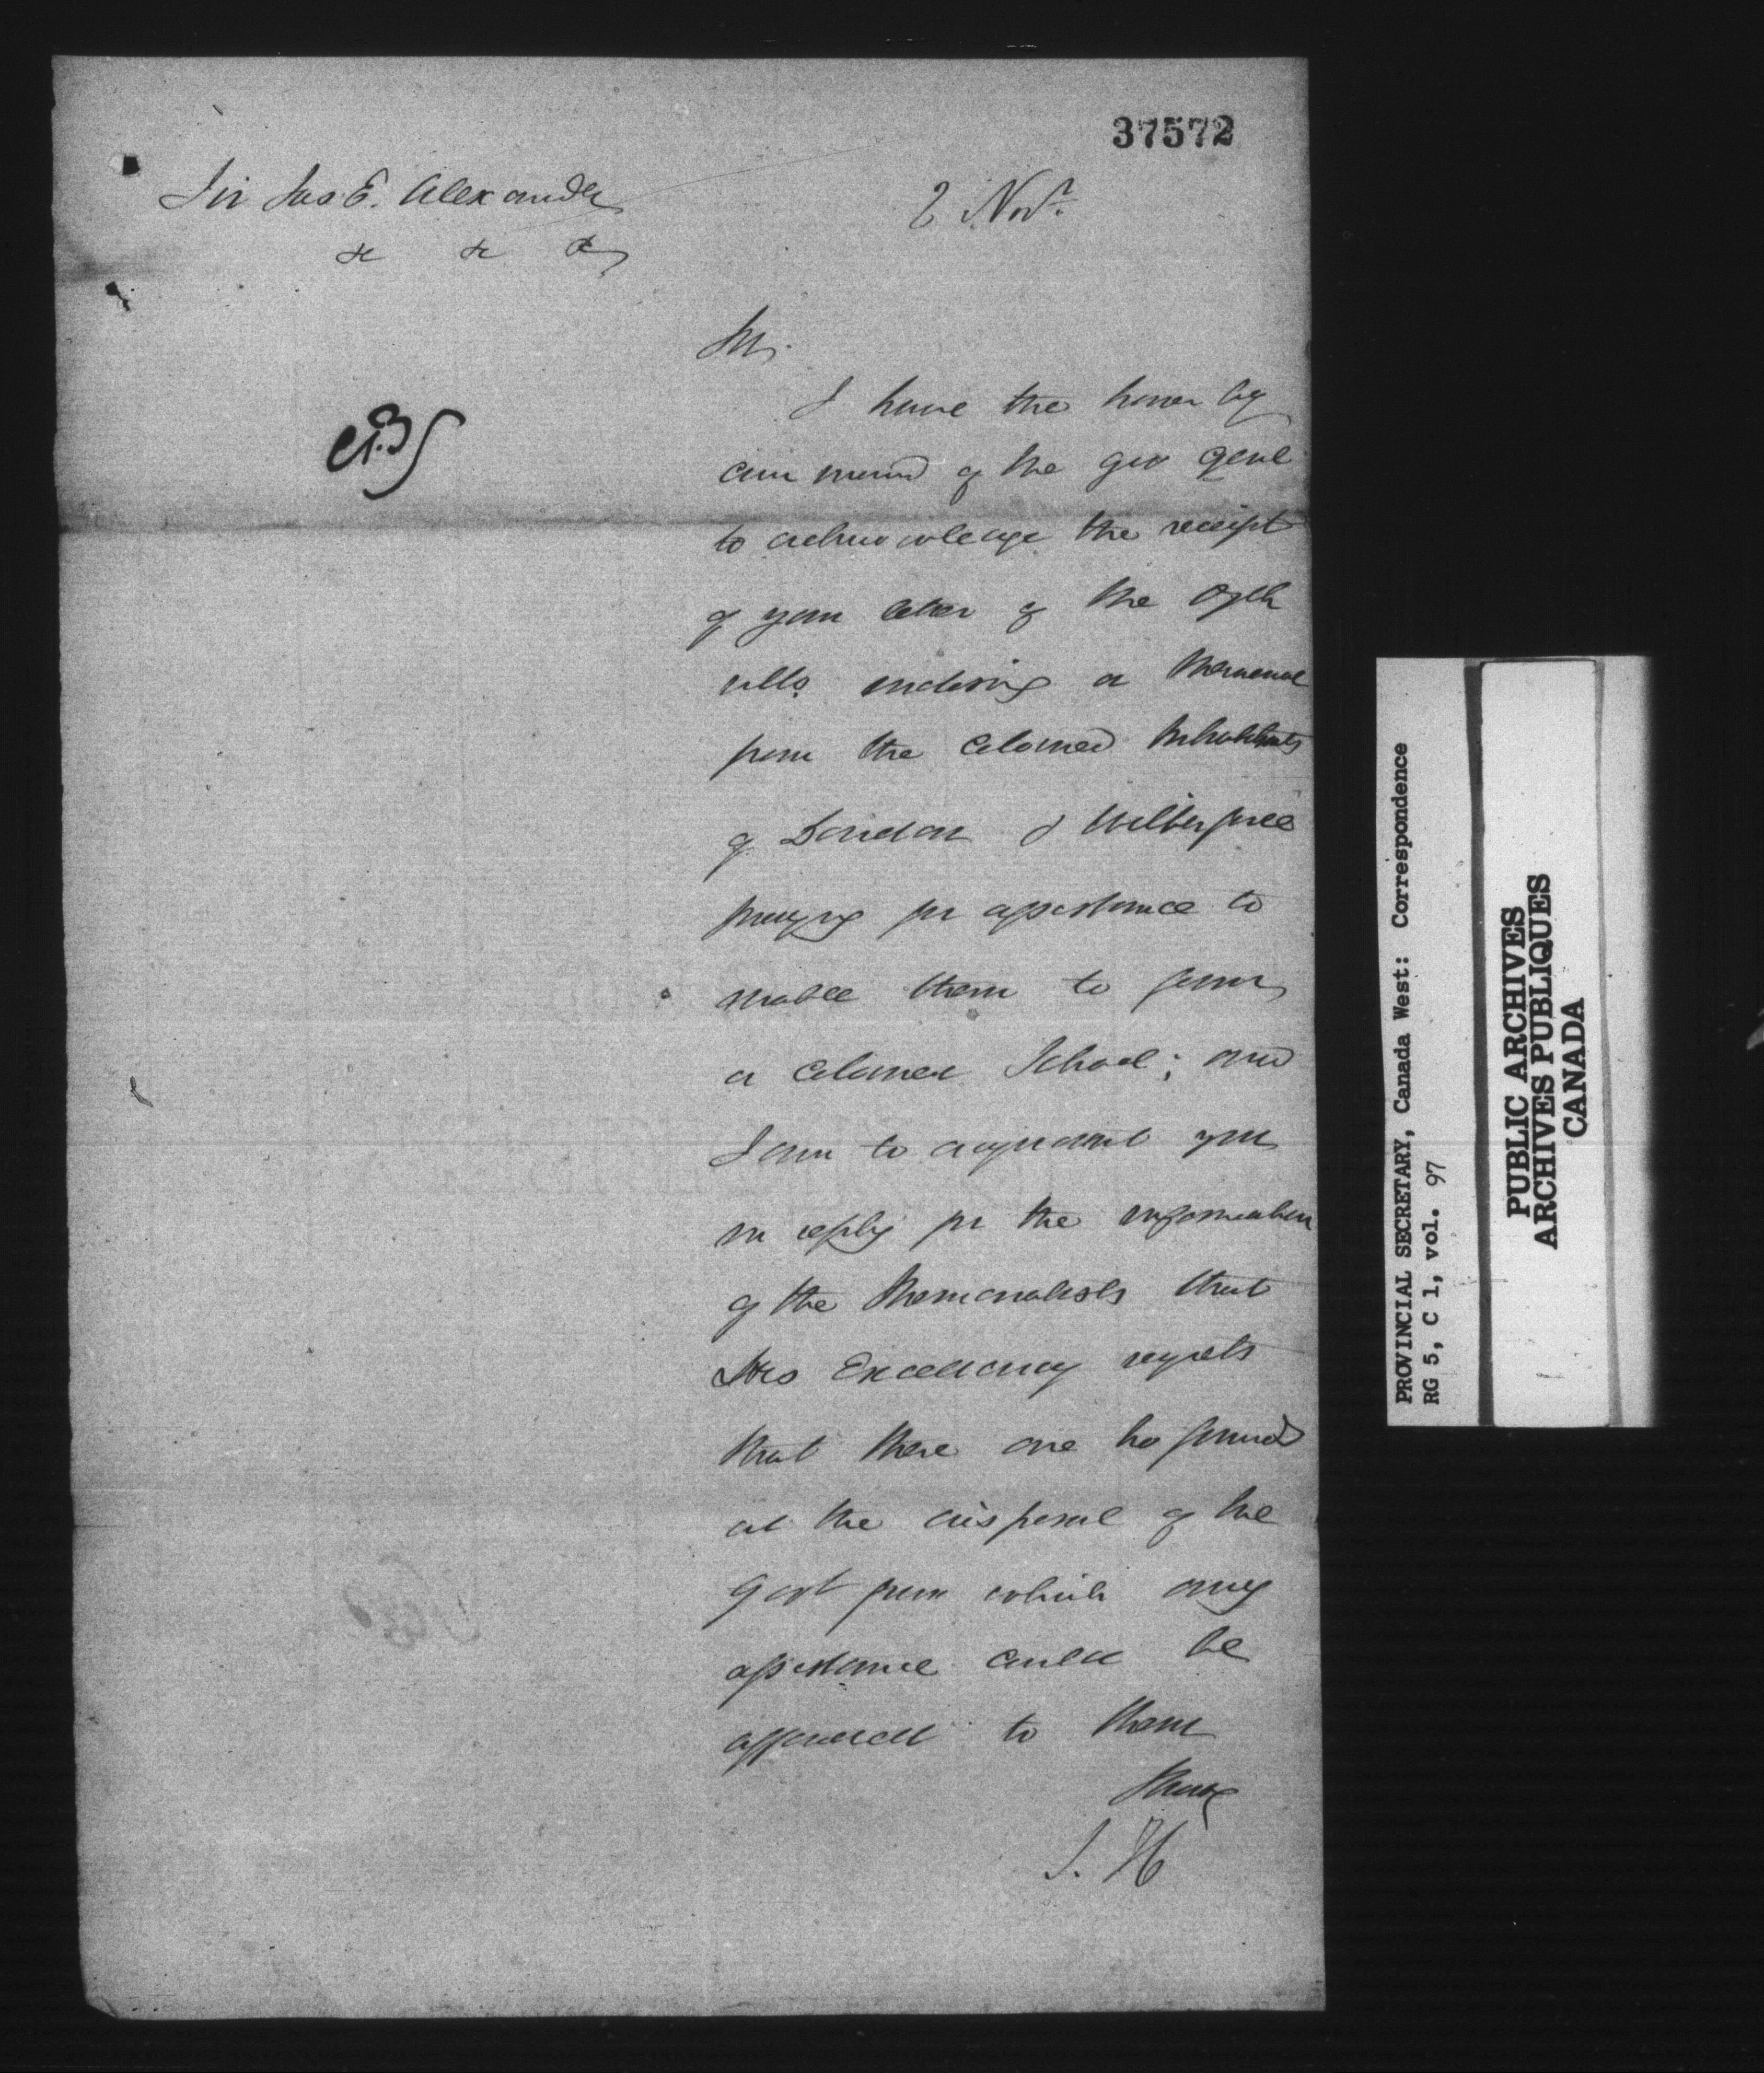 37572
Sir Jas E. Alexander
&c &c &c
2 Novr.
Sir,
I have the honor by
command of the Gov Genl
to acknowledge the receipt
of your letter of the
ulto. enclosing a Memorial
from the Colored Inhabitants
of London & Wilberforce
praying for assistance to
enable them to form
a Colored School; and
I am to acquaint you
in reply for the information
of the Memorialists that
His Excellency regrets
that there are no funds
at the disposal of the
Govt from which any
assistance could be
afforded to them
I have
J. H
PROVINCIAL SECRETARY, Canada West: Correspondence
RG 5, C 1, vol. 97
PUBLIC ARCHIVES
ARCHIVES PUBLIQUES
CANADA